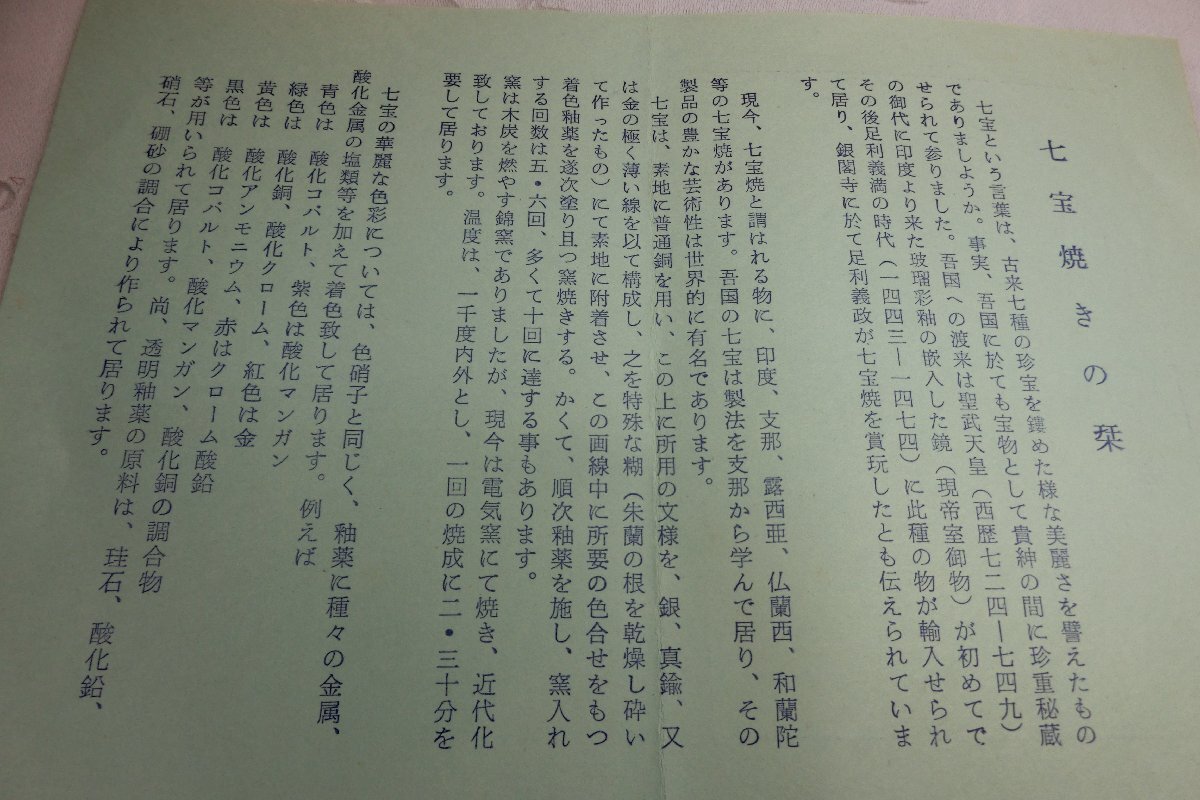 七宝焼きの栞
七宝という言葉は、古来七種の珍宝を鏤めた様な美麗さを譬えたもの
でありましようか。事実、吾国に於ても宝物として貴紳の間に珍重秘蔵
せられて参りました。吾国への渡来は聖武天皇（西歴七二四―七四九）
の御代に印度より来た玻瑠彩釉の嵌入した鏡（現帝室御物）が初めてで
その後足利義満の時代（一四四三―一四七四）に此種の物が輸入せられ
て居り、銀閣寺に於て足利義政が七宝焼を賞玩したとも伝えられていま
す。
現今、七宝焼と謂はれる物に、印度、支那、露西亜、仏蘭西、和蘭陀
等の七宝焼があります。吾国の七宝は製法を支那から学んで居り、その
製品の豊かな芸術性は世界的に有名であります。
七宝は、素地に普通銅を用い、この上に所用の文様を、銀、真鍮、又
は金の極く薄い線を以て構成し、之を特殊な糊（朱蘭の根を乾燥し砕い
て作ったもの）にて素地に附着させ、この画線中に所要の色合せをもつ
着色釉薬を遂次塗り且つ窯焼きする。かくて、順次釉薬を施し、窯入れ
する回数は五・六回、多くて十回に達する事もあります。
窯は木炭を燃やす錦窯でありましたが、現今は電気窯にて焼き、近代化
致しております。温度は、一千度内外とし、一回の焼成に二・三十分を
要して居ります。
七宝の華麗な色彩については、色硝子と同じく、釉薬に種々の金属、
酸化金属の塩類等を加えて着色致して居ります。例えば
青色は　酸化コバルト、紫色は酸化マンガン
緑色は　酸化銅、酸化クローム、紅色は金
黄色は　酸化アンモニウム、赤はクローム酸鉛
黒色は　酸化コバルト、酸化マンガン、酸化銅の調合物
等が用いられて居ります。尚、透明釉薬の原料は、珪石、酸化鉛、
硝石、硼砂の調合により作られて居ります。